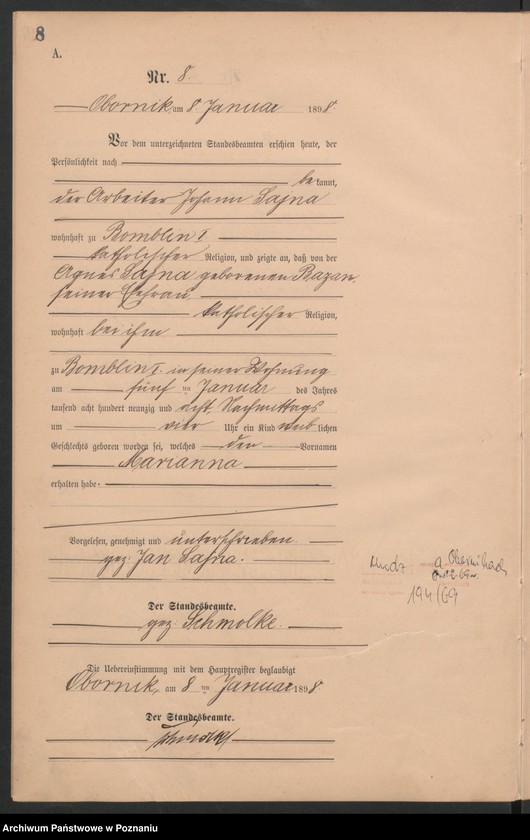 8
A.
Nr. 8.
Obornik, am 8. Januar 1898.
Vor dem unterzeichneten Standesbeamten erschien heute, der
Persönlichkeit nach
bekannt,
der Arbeiter Johann Sajna
wohnhaft zu Bomblin I
katholischer Religion, und zeigte an, daß von der
Agnes Sajna geborenen Bazan,
seiner Ehefrau
katholischer Religion,
wohnhaft bei ihm
zu Bomblin I. in seiner Wohnung
am fünf ten Januar des Jahres
tausend acht hundert neunzig und acht Nachmittags
um vier Uhr ein Kind weiblichen
Geschlechts geboren worden sei, welches den Vornamen
Marianna
erhalten habe.
Vorgelesen, genehmigt und unterschrieben.
gez. Jan Sajna.
Der Standesbeamte.
gez. Schmolke.
Die Uebereinstimmung mit dem Hauptregister beglaubigt
Obornik, am 8 ten Januar 1898
Der Standesbeamte.
Schmolke
194/69
Archiwum Państwowe w Poznaniu